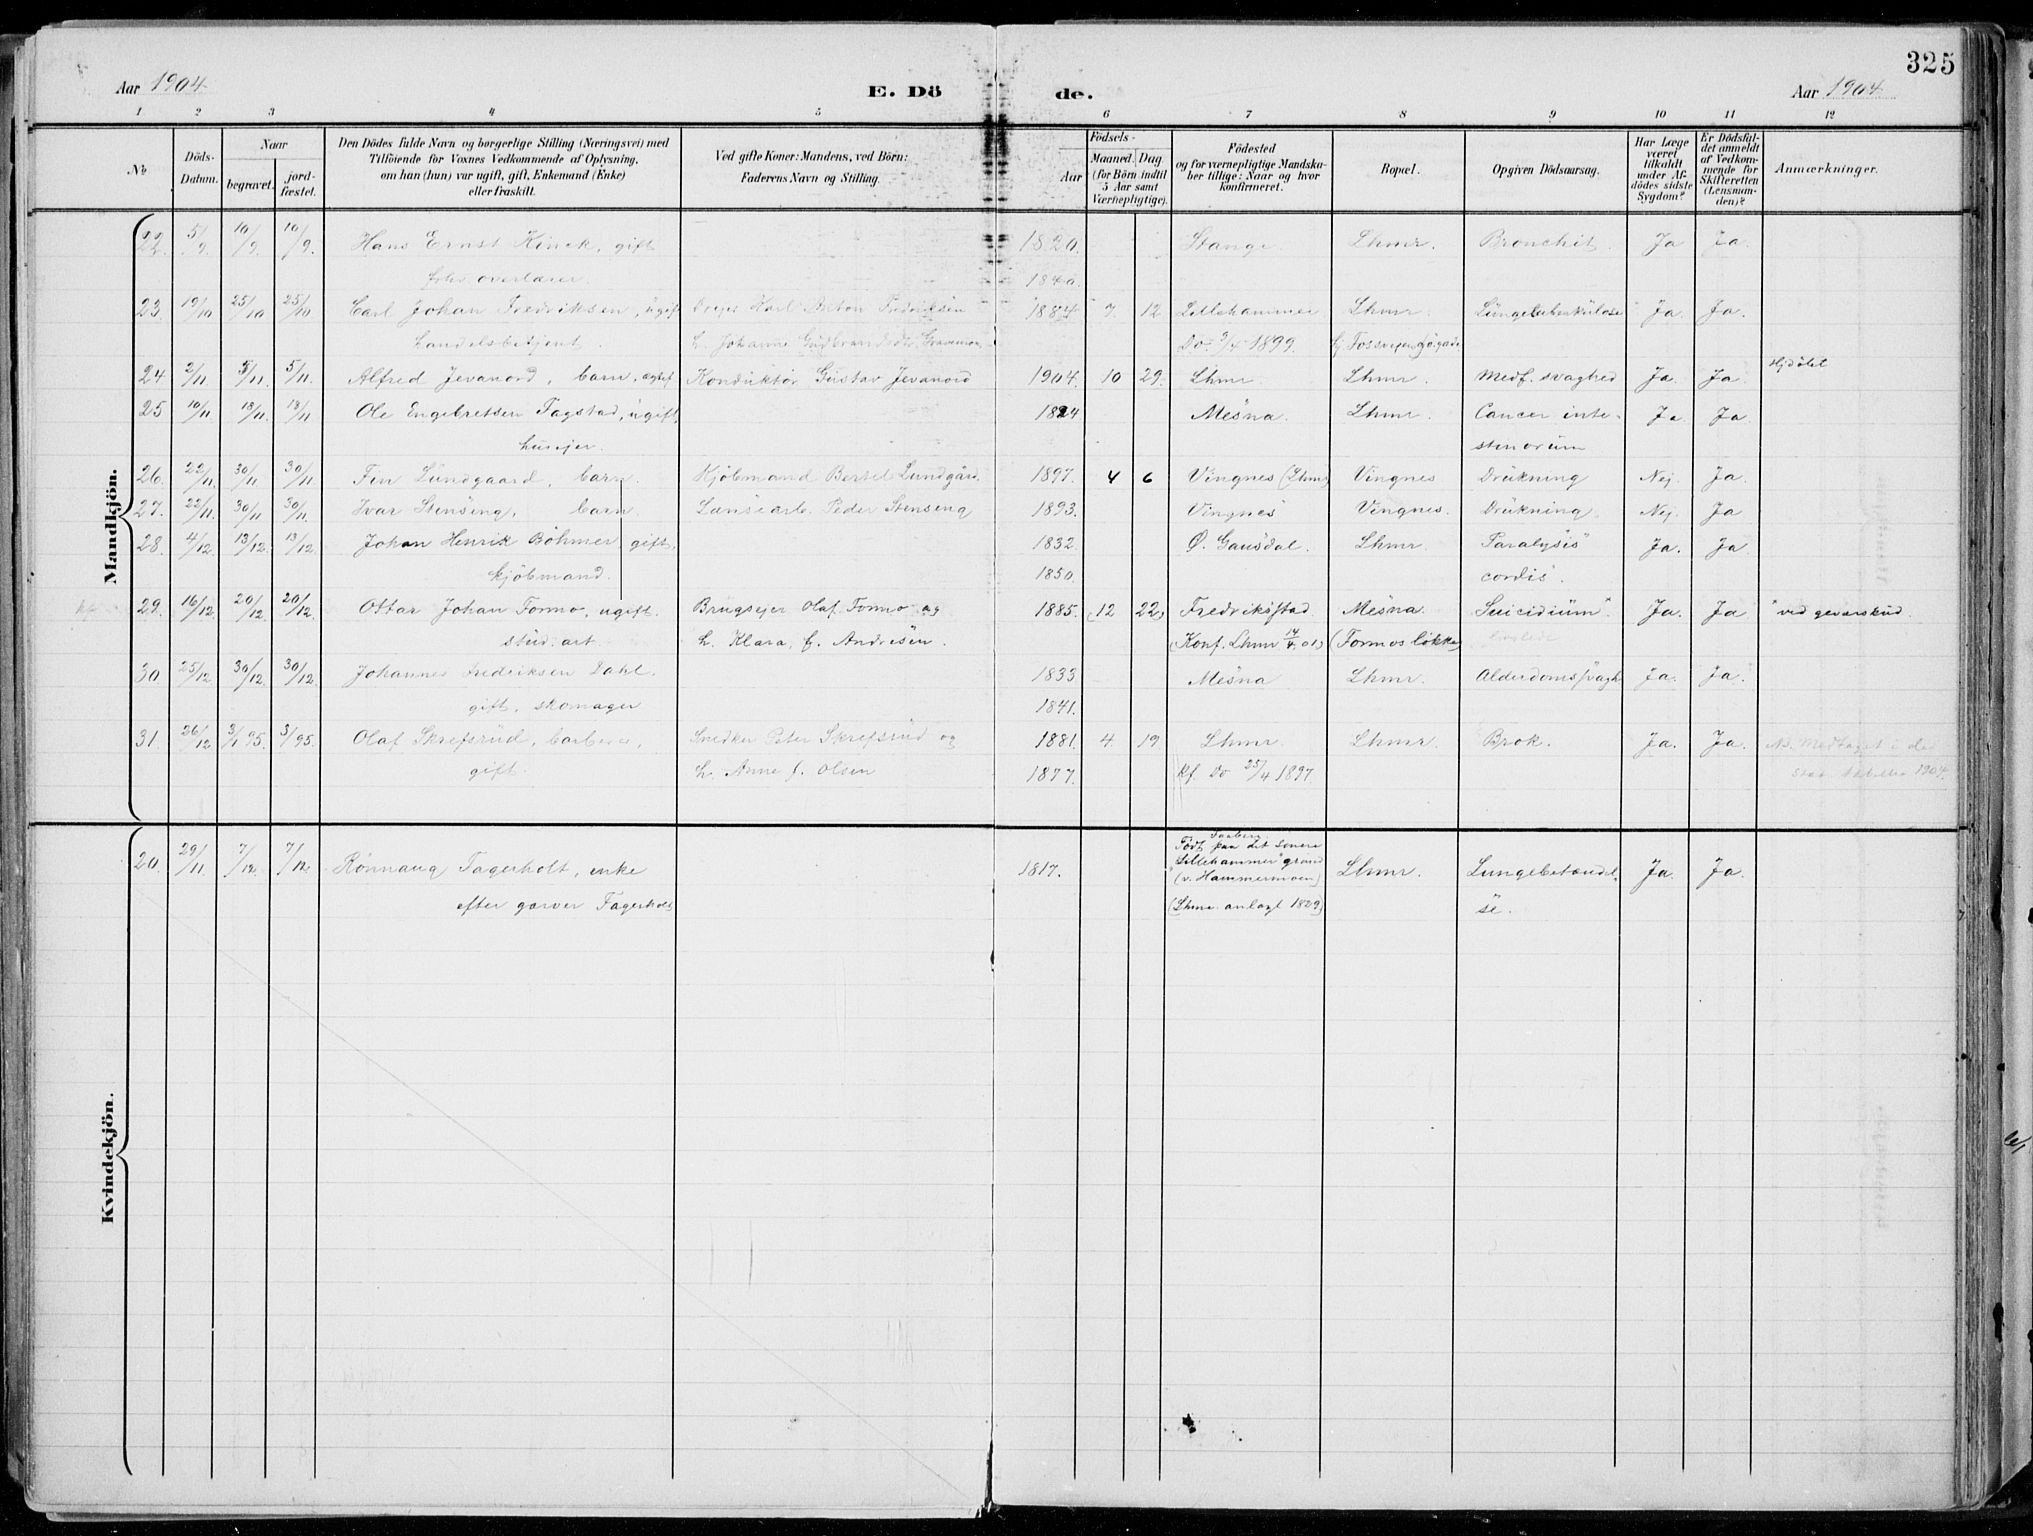 325
Aar 1904. E. Dö de. Aar 1904
1 2 3 4 5 6 7 8 9 10 11 12
No
Döds-Datum.
Naar
begravet.
jord-fæstet.
Den Dödes fulde Navn og borgerlige Stilling (Næringsvei) med
Tilföiende for Voxnes Vedkommende af Oplysning,
om han (hun) var ugift, gift, Enkemand (Enke)
eller fraskilt.
Ved gifte Koner: Mandens, ved Börn:
Faderens Navn og Stilling.
Födsels-
Aar
Maaned. Dag
(for Börn indtil
5 Aar samt
Værnepligtige).
Födested
og for værnepligtige Mandska-
ber tillige: Naar og hvor
konfirmeret.
Bopæl.
Opgiven Dödsaarsag.
Har Læge
været
tilkaldt
under Af-
dödes sidste
Sygdom?
Er Dödsfal-
det anmeldt
af Vedkom-
mende for
Skifteretten
(Lensman-
den)?
Anmærkninger.
Mandkjön.
22. 5/9. 10/9. 10/9. Hans Ernst Kinck, gift 1820. Stange. Lhmr. Bronchit. Ja Ja.
fhv. overlærer. 1840.
23. 19/10 25/10 25/10 Carl Johan Fredriksen, ugift Drejer Karl Anton Fredriksen 1884 7. 12 Lillehammer Lhmr. Lungetuberkulose Ja. Ja.
handelsbetjent. h. Johanne Gudbrandsdtr. Do. 9/4 1899.
24 2/11. 5/11. 5/11. Alfred Jevanord, barn, ægtef. Konduktør Gustav Jevanord 1904. 10 29. Lhmr. Lhmr. Medf. svaghed Ja. Ja hjdöbt
25 10/11 18/11. 18/11 Ole Engebretsen Fagstad, ugift, 1824 Mesna. Lhmr. Cancer inte-
husejer. stinorum Ja Ja
26. 22/11. 30/11 30/11 Fin Lundgaard, barn. Kjøbmand Bertel Lundgård. 1897. 4 6 Vingnes (Lhmr) Vingnes Drukning Nej. Ja.
27. 22/11. 30/11 30/11. Ivar Stenseng, barn. Peder Stenseng 1893. Vingnes Vingnes. Drukning. Nej. Ja
28. 4/12. 13/12. 13/12. Johan Henrik Böhmer, gift, 1832. Ø. Gausdal. Lhmr. Paralysis Ja. Ja
kjöbmand. 1850. cordis.
29. 16/12. 20/12 20/12. Ottar Johan Formo, ugift. Brugsejer Olaf Formo og 1885. (12 22) Fredriksstad. Mesna. Suicidium" Ja. Ja "ved geværskud.
stud. art. h. Klara, f. Andresen. (Konf. Lhmr 14/4. 01) (Formos løkke)
30. 25/12 30/12. 30/12. Johannes Fredriksen Dahl. 1833 Mesna Lhmr. Alderdomssvagh Ja. Ja.
gift, skomager 1841.
31. 26/12 3/1 95. 3/1 95. Olaf Skrefsrud, barberer, Snedker Peter Skrefsrud og 1881. 4. 19 Lhmr. Lhmr. Brok. Ja. Ja. NB. Medtaget i de
gift. h. Anne f. Olsen 1877. kf. Do 25/4 1897 1904.
Kvindekjön.
20. 29/11. 7/12. 7/12. Rönnaug Fagerholt, enke 1817. Faaberg.
Födt paa det senere
"Lillehammer" grund
(v. Hammermoen) Lhmr. Lungebetændel- Ja. Ja.
efter garver Fagerholt (Lhmr. anlagt 1829) se.